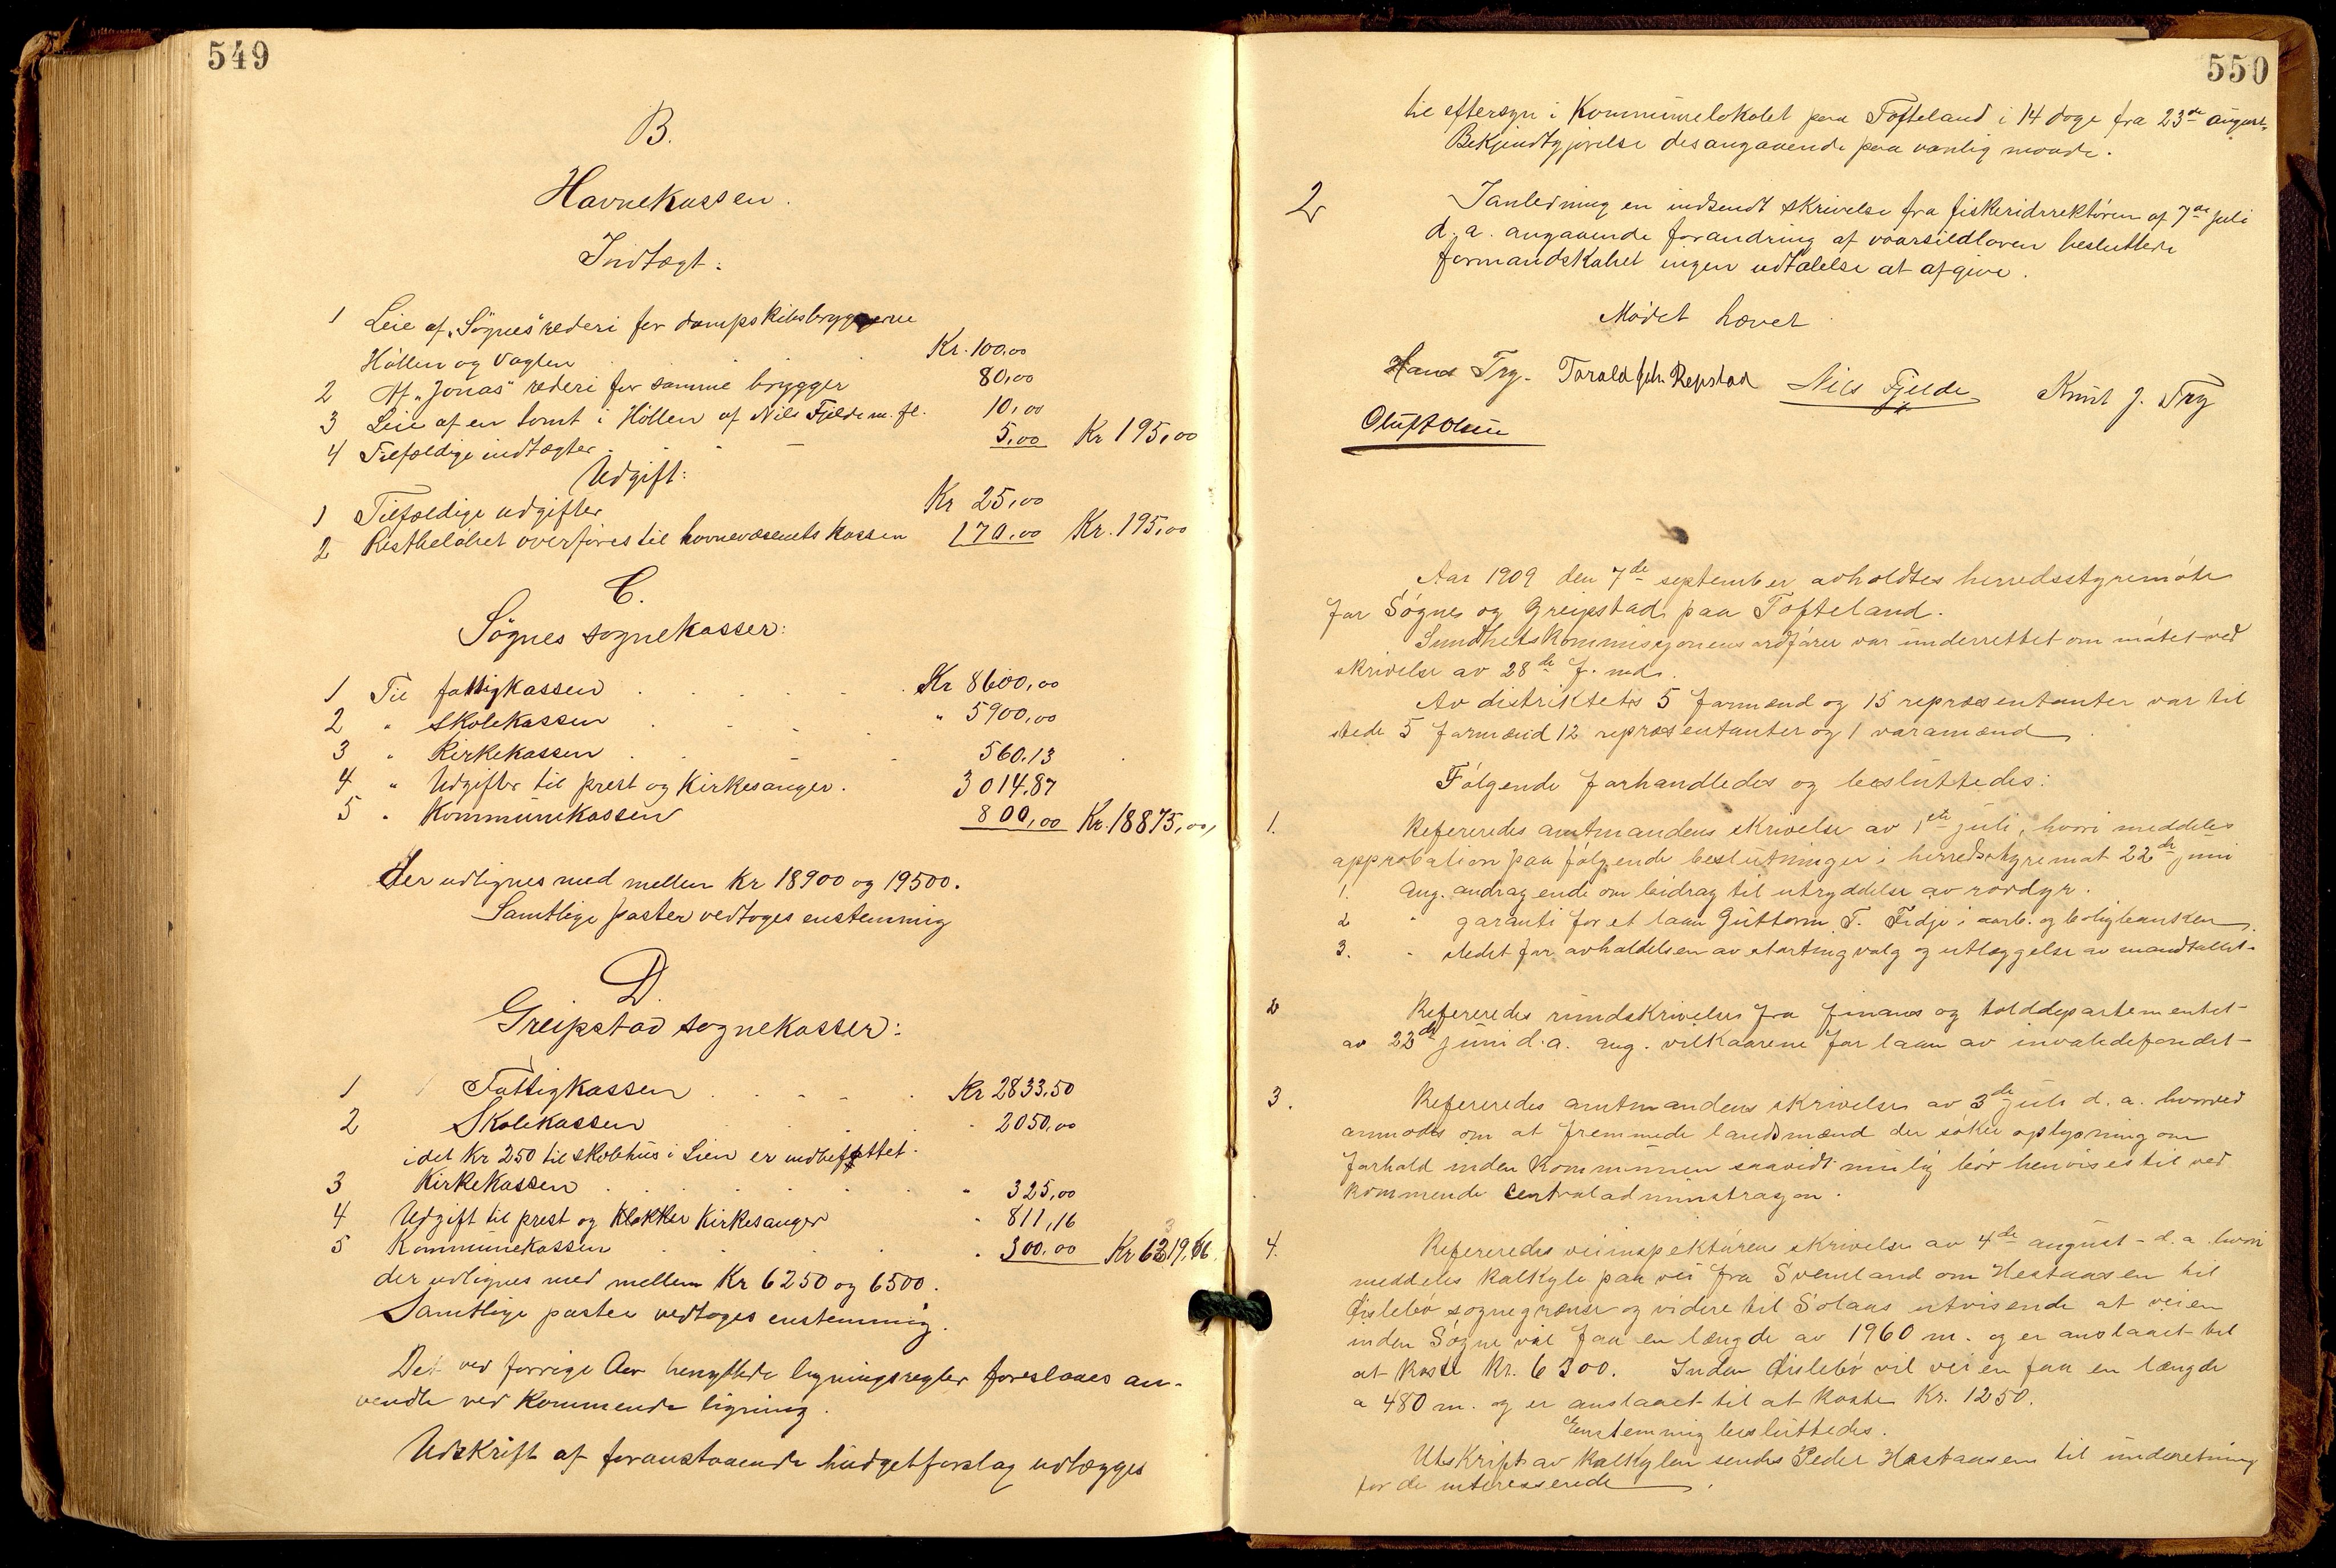 549
B.
Havnekassen.
Indtægt:
1 Leie af "Søgnes" rederi for dampskibsbryggerne
Höllen og Vaglen Kr. 100,00
2 Af "Jonas" rederi for samme brygger 80,00
3 Leie af en tomt i Höllen af Nils Fjelde m. fl. 10,00
4 Tilfældige indtægter 5,00 Kr 195,00
Udgift:
1 Tilfældige udgifter Kr 25,00
2 Restbeløbet overføres til havnevæsenets kassen 170,00 Kr. 195,00
C.
Søgnes sognekasser:
1 Til fattigkassen Kr 8600,00
2 " Skolekassen " 5900,00
3 " Kirkekassen 560.13
4 " Udgifter til prest og Kirkesanger. 3014.87
5 " Kommunekassen 800,00 Kr. 18875,00,
der udlignes med mellem Kr 18900 og 19500.
Samtlige poster vedtoges enstemmig
D.
Greipstad sognekasser:
1 Fattigkassen Kr 2833.50
2 Skolekassen " 2050,00
idet Kr 250 til skolehus i Lien er indbefattet.
3 Kirkekassen " 325,00
4 Udgift til prest og Klokker Kirkesanger " 811,16
5 Kommunekassen " 300.00 Kr 6319,66
der udlignes med mellem Kr 6250 og 6500.
Samtlige poster vedtoges enstemmig.
Det ved forrige Aar benyttede ligningsregler foreslaaes an-
vendte ved Kommende ligning.
Udskrift af foranstaaende budgetforslag udlægges
550
til eftersyn i Kommunelokalet paa Tofteland i 14 dage fra 23de august.
Bekjendtgjørelse desangaaende paa vanlig maade.
2 I anledning en indsendt skrivelse fra fiskeridirektören af 7de juli
d. a. angaaende forandring af vaarsildloven besluttede
formandskabet ingen udtalelse at afgive.
Mødet hævet
Hans Try. Torald Joh. Repstad Nils Fjelde Knut J. Try
Oluf Olsen
Aar 1909 den 7de september avholdtes herredsstyremöte
for Søgne og Greipstad paa Tofteland.
Sundhetskommisjonens ordförer var underrettet om mötet ved
skrivelse av 28de f. md.
Av distriktets 5 formænd og 15 repræsentanter var til
stede 5 formænd 12 repræsentanter og 1 varamænd.
Følgende forhandledes og besluttedes:
1. Refereredes amtmandens skrivelse av 1ste juli, hvori meddeles
approbation paa følgende beslutninger i herredsstyremøt 22de juni
1. Ang. andragende om bidrag til utryddelse av rovdyr.
2 " garanti for et laan Guttorm T. Fidje i arb. og boligbanken.
3. " stedet for avholdelsen av stortingvalg og utlæggelse av mandtallet.
2 Refereredes rundskrivelse fra finans og tolddepartementet
av 22de juni d. a. ang. vilkaarene for laan av invalidefondet
3. Refereredes amtmandens skrivelse av 3de juli d. a. hvorved
anmodes om at fremmede landsmænd der søker oplysning om
forhold inden kommunen saavidt mulig bør henvises til ved
kommende centraladminstrasjon.
4. Refereredes veiinspektörens skrivelse av 4de august d. a. hvori
meddeles kalkyle paa vei fra Svenland om Hestaasen til
Øislebø sognegrænse og videre til Solaas utvisende at veien
inden Søgne vil faa en længde av 1960 m. og er anslaaet til
at koste Kr. 6300. Inden Øislebø vil veien faa en længde
a 480 m. og er anslaaet til at koste Kr. 1250.
Enstemmig besluttedes.
Utskrift av kalkylen sendes Peder Hestaasen til underetning
for de interesserede.